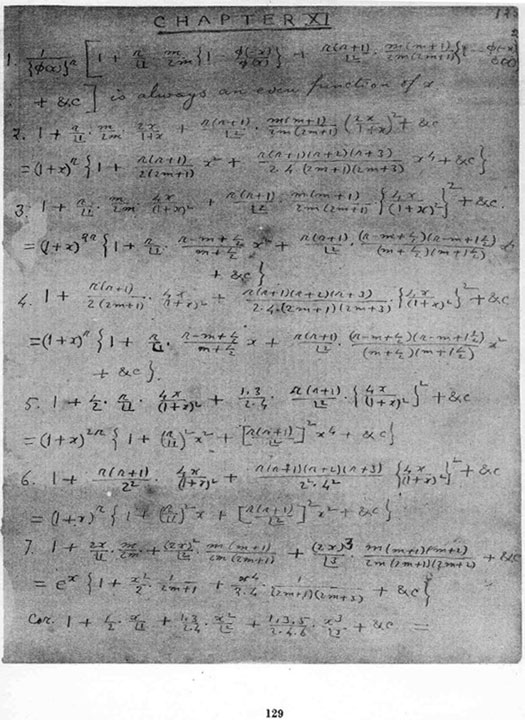 CHAPTER XI
1. 1/{φ(x)}^n [1 + n/⌊1 · m/2m {1 - φ(-x)/φ(x)} + n(n+1)/⌊2 · m(m+1)/2m(2m+1) {1 - φ(-x)/φ(x)}
+ &c] is always an even function of x
2. 1 + n/⌊1 · m/2m · 2x/1+x + n(n+1)/⌊2 · m(m+1)/2m(2m+1) (2x/1+x)^2 + &c
= (1+x)^n {1 + n(n+1)/2(2m+1) x^2 + n(n+1)(n+2)(n+3)/2.4.(2m+1)(2m+3) x^4 + &c}
3. 1 + n/⌊1 · m/2m · 4x/(1+x)^2 + n(n+1)/⌊2 · m(m+1)/2m(2m+1) · {4x/(1+x)^2}^2 + &c.
= (1+x)^2n {1 + n/⌊1 · n-m+½/m+½ x^2 + n(n+1)/⌊2 · (n-m+½)(n-m+1½)/(m+½)(m+1½) x^4
+ &c}
4. 1 + n(n+1)/2(2m+1) · 4x/(1+x)^2 + n(n+1)(n+2)(n+3)/2.4.(2m+1)(2m+3) · {4x/(1+x)^2}^2 + &c
= (1+x)^n {1 + n/⌊1 · n-m+½/m+½ x + n(n+1)/⌊2 · (n-m+½)(n-m+1½)/(m+½)(m+1½) x^2
+ &c}.
5. 1 + ½ · n/⌊1 · 4x/(1+x)^2 + 1.3/2.4 · n(n+1)/⌊2 · {4x/(1+x)^2}^2 + &c
= (1+x)^2n {1 + (n/⌊1)^2 x^2 + [n(n+1)/⌊2]^2 x^4 + &c}
6. 1 + n(n+1)/2^2 · 4x/(1+x)^2 + n(n+1)(n+2)(n+3)/2^2.4^2 {4x/(1+x)^2}^2 + &c
= (1+x)^n {1 + (n/⌊1)^2 x + [n(n+1)/⌊2]^2 x^2 + &c}
7. 1 + 2x/⌊1 · m/2m + (2x)^2/⌊2 · m(m+1)/2m(2m+1) + (2x)^3/⌊3 · m(m+1)(m+2)/2m(2m+1)(2m+2) + &c
= e^x {1 + x^2/2 · 1/2m+1 + x^4/2.4 · 1/(2m+1)(2m+3) + &c}
Cor. 1 + ½ · x/⌊1 + 1.3/2.4 · x^2/⌊2 + 1.3.5/2.4.6 · x^3/⌊3 + &c =
129